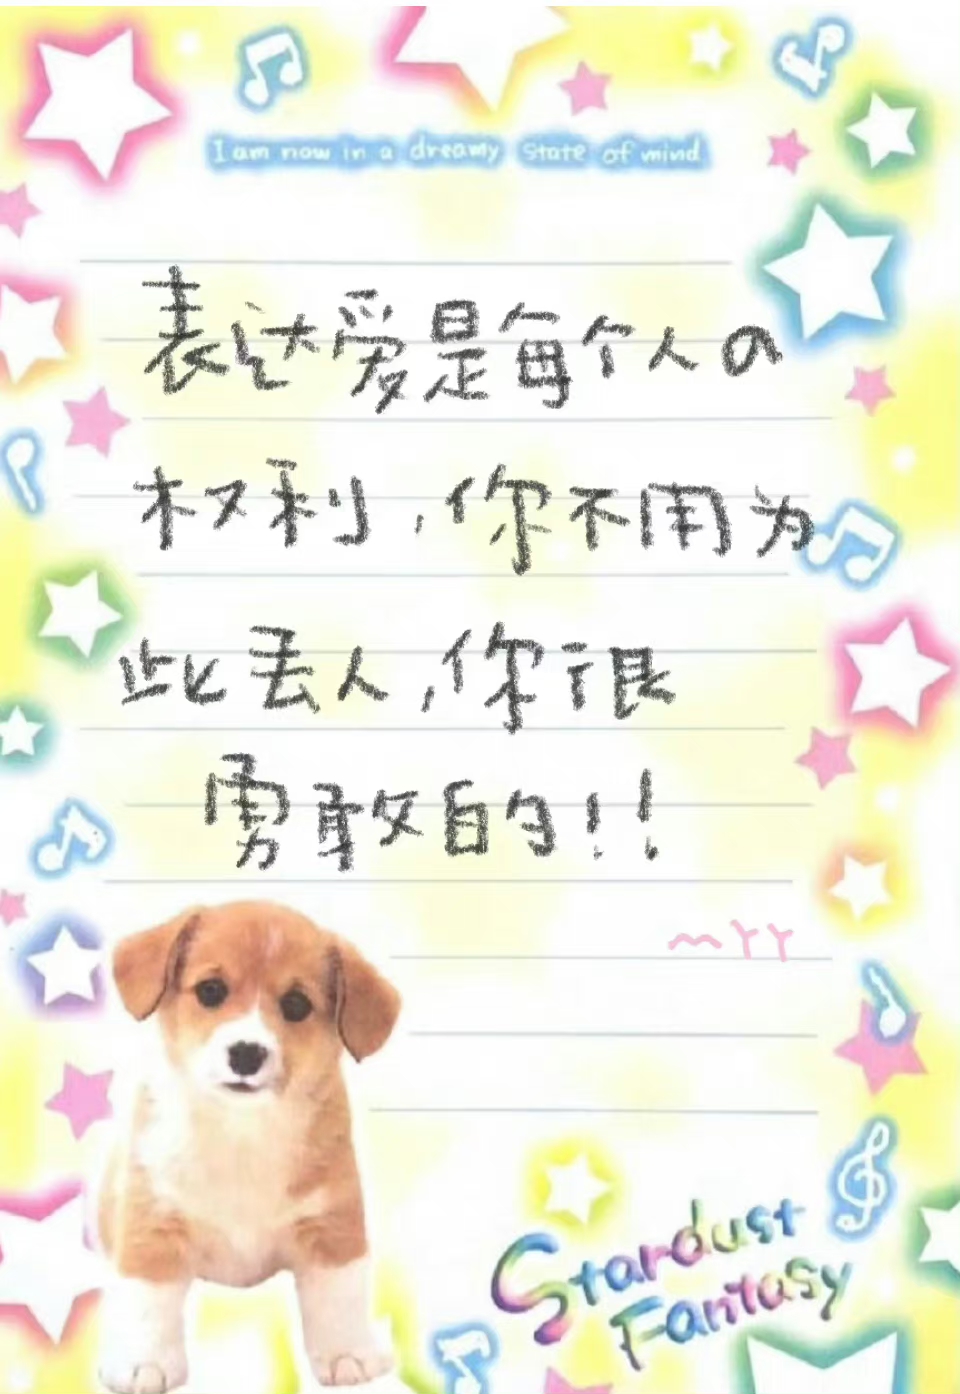 I am now in a dreamy state of mind
表达爱是每个人の
权利,你不用为
此丢人,你很
勇敢的!!
~YY
Stardust
Fantasy